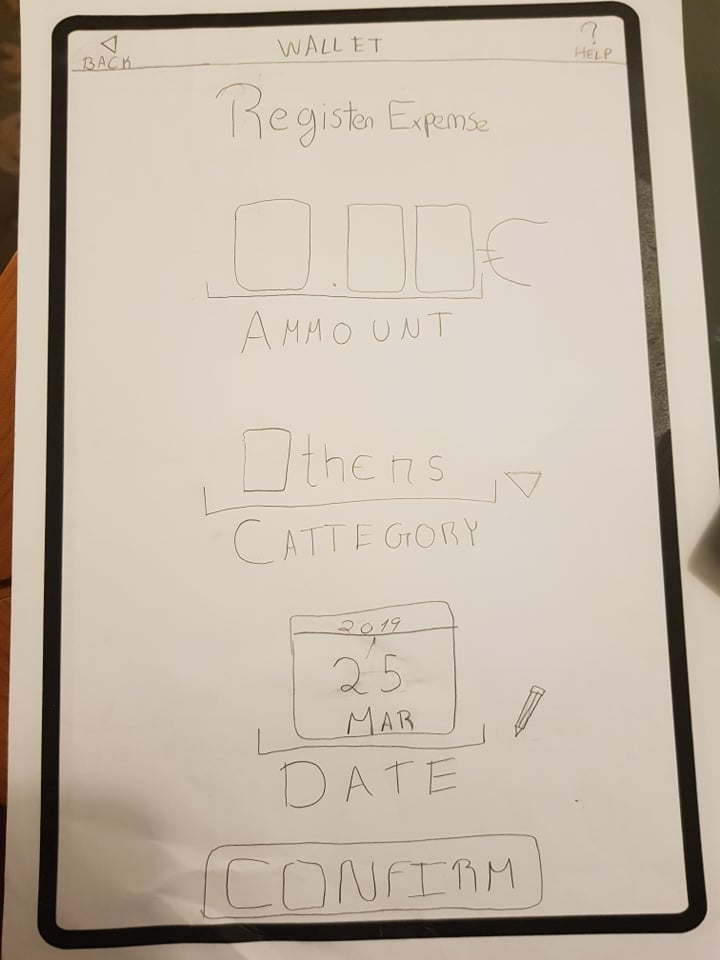 BACK WALLET ? HELP
Register Expense
0.00€
AMMOUNT
Others
CATTEGORY
2019
25
MAR
DATE
CONFIRM